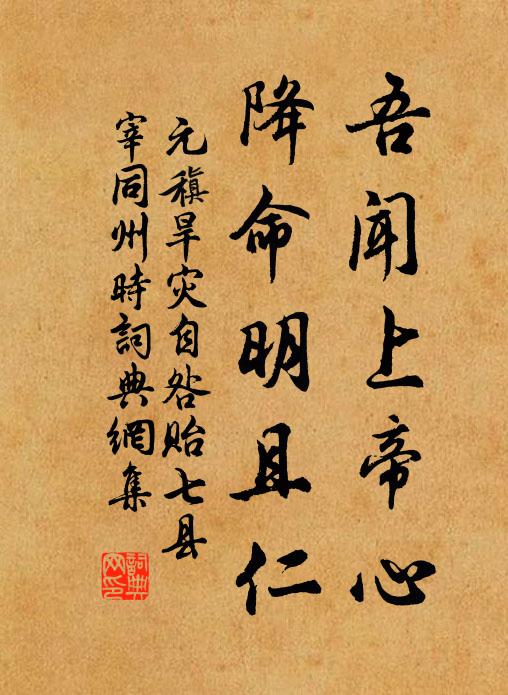 吾闻上帝心
降命明且仁
元稹旱灾自咎贻七县
宰同州时詞典網集
詞典网印